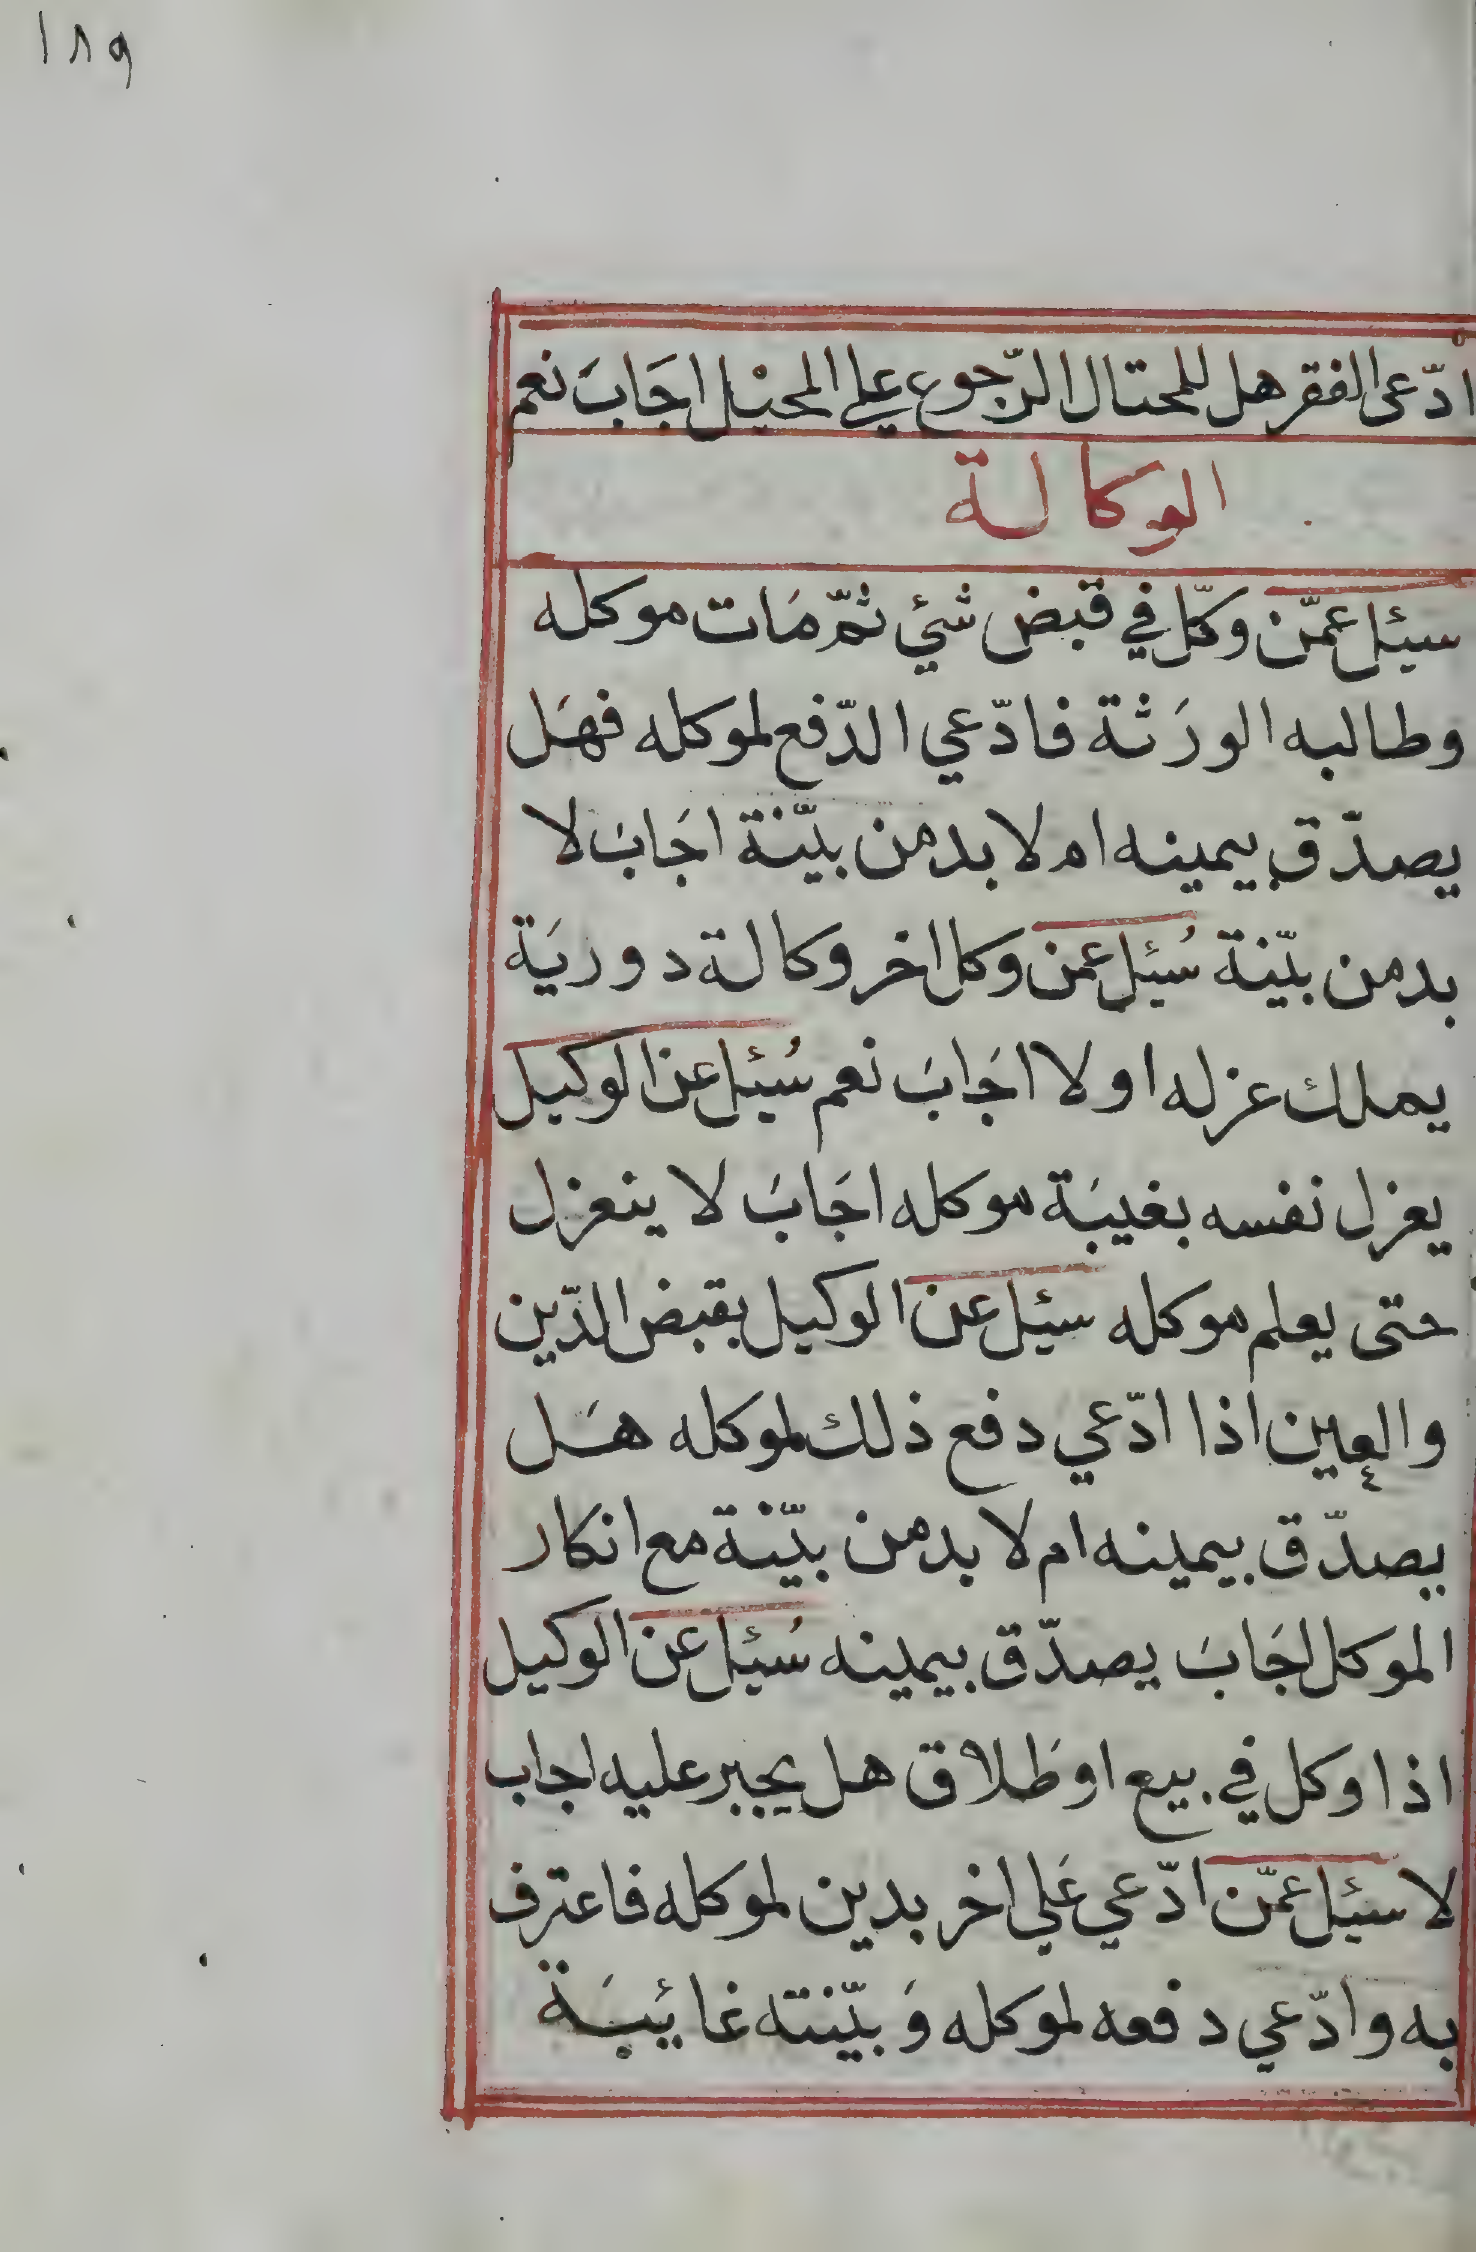 ١٨٩
ادّعى الفقر هل للمحتال الرّجوع علي المحيل اجَابَ نعم
الوكالة
سيئل عمّن وكّل في قبض شئ ثمّ مَات موكله
وطالبه الورَثة فادّعي الدّفع لموكله فهَل
يصدّق بيمينه ام لا بد من بيّنة اجَابَ لا
بد من بيّنة سُئيل عمن وكل اخر وكالة دوريَة
يملك عزله او لا اجَابَ نعم سُئيل عن الوكيل
يعزل نفسه بغيبَة موكله اجَابَ لا ينعزل
حتى يعلم موكله سيئل عن الوكيل بقبض الدّين
والعين اذا ادّعي دفع ذلك لموكله هَل
يصدّق بيمينه ام لا بد من بيّنة مع انكار
الموكل اجَابَ يصدّق بيمينه سُئيل عن الوكيل
اذا وكل في بيع او طَلاق هل يجبر عليه اجاب
لا سيئل عمّن ادّعي عَلي اخر بدين لموكله فاعترف
به وادّعي دفعه لموكله وَبيّنته غائبَة